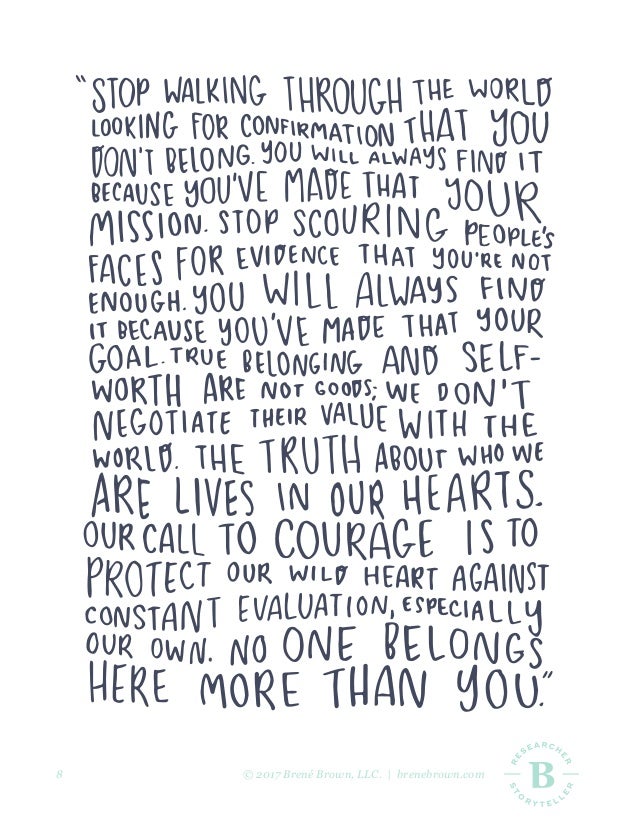 “STOP WALKING THROUGH THE WORLD
LOOKING FOR CONFIRMATION THAT YOU
DON'T BELONG. YOU WILL ALWAYS FIND IT
BECAUSE YOU'VE MADE THAT YOUR
MISSION. STOP SCOURING PEOPLE'S
FACES FOR EVIDENCE THAT YOU'RE NOT
ENOUGH. YOU WILL ALWAYS FIND
IT BECAUSE YOU'VE MADE THAT YOUR
GOAL. TRUE BELONGING AND SELF-
WORTH ARE NOT GOODS; WE DON'T
NEGOTIATE THEIR VALUE WITH THE
WORLD. THE TRUTH ABOUT WHO WE
ARE LIVES IN OUR HEARTS.
OUR CALL TO COURAGE IS TO
PROTECT OUR WILD HEART AGAINST
CONSTANT EVALUATION, ESPECIALLY
OUR OWN. NO ONE BELONGS
HERE MORE THAN YOU.”
8 © 2017 Brené Brown, LLC. | brenebrown.com
RESEARCHER
B
STORYTELLER